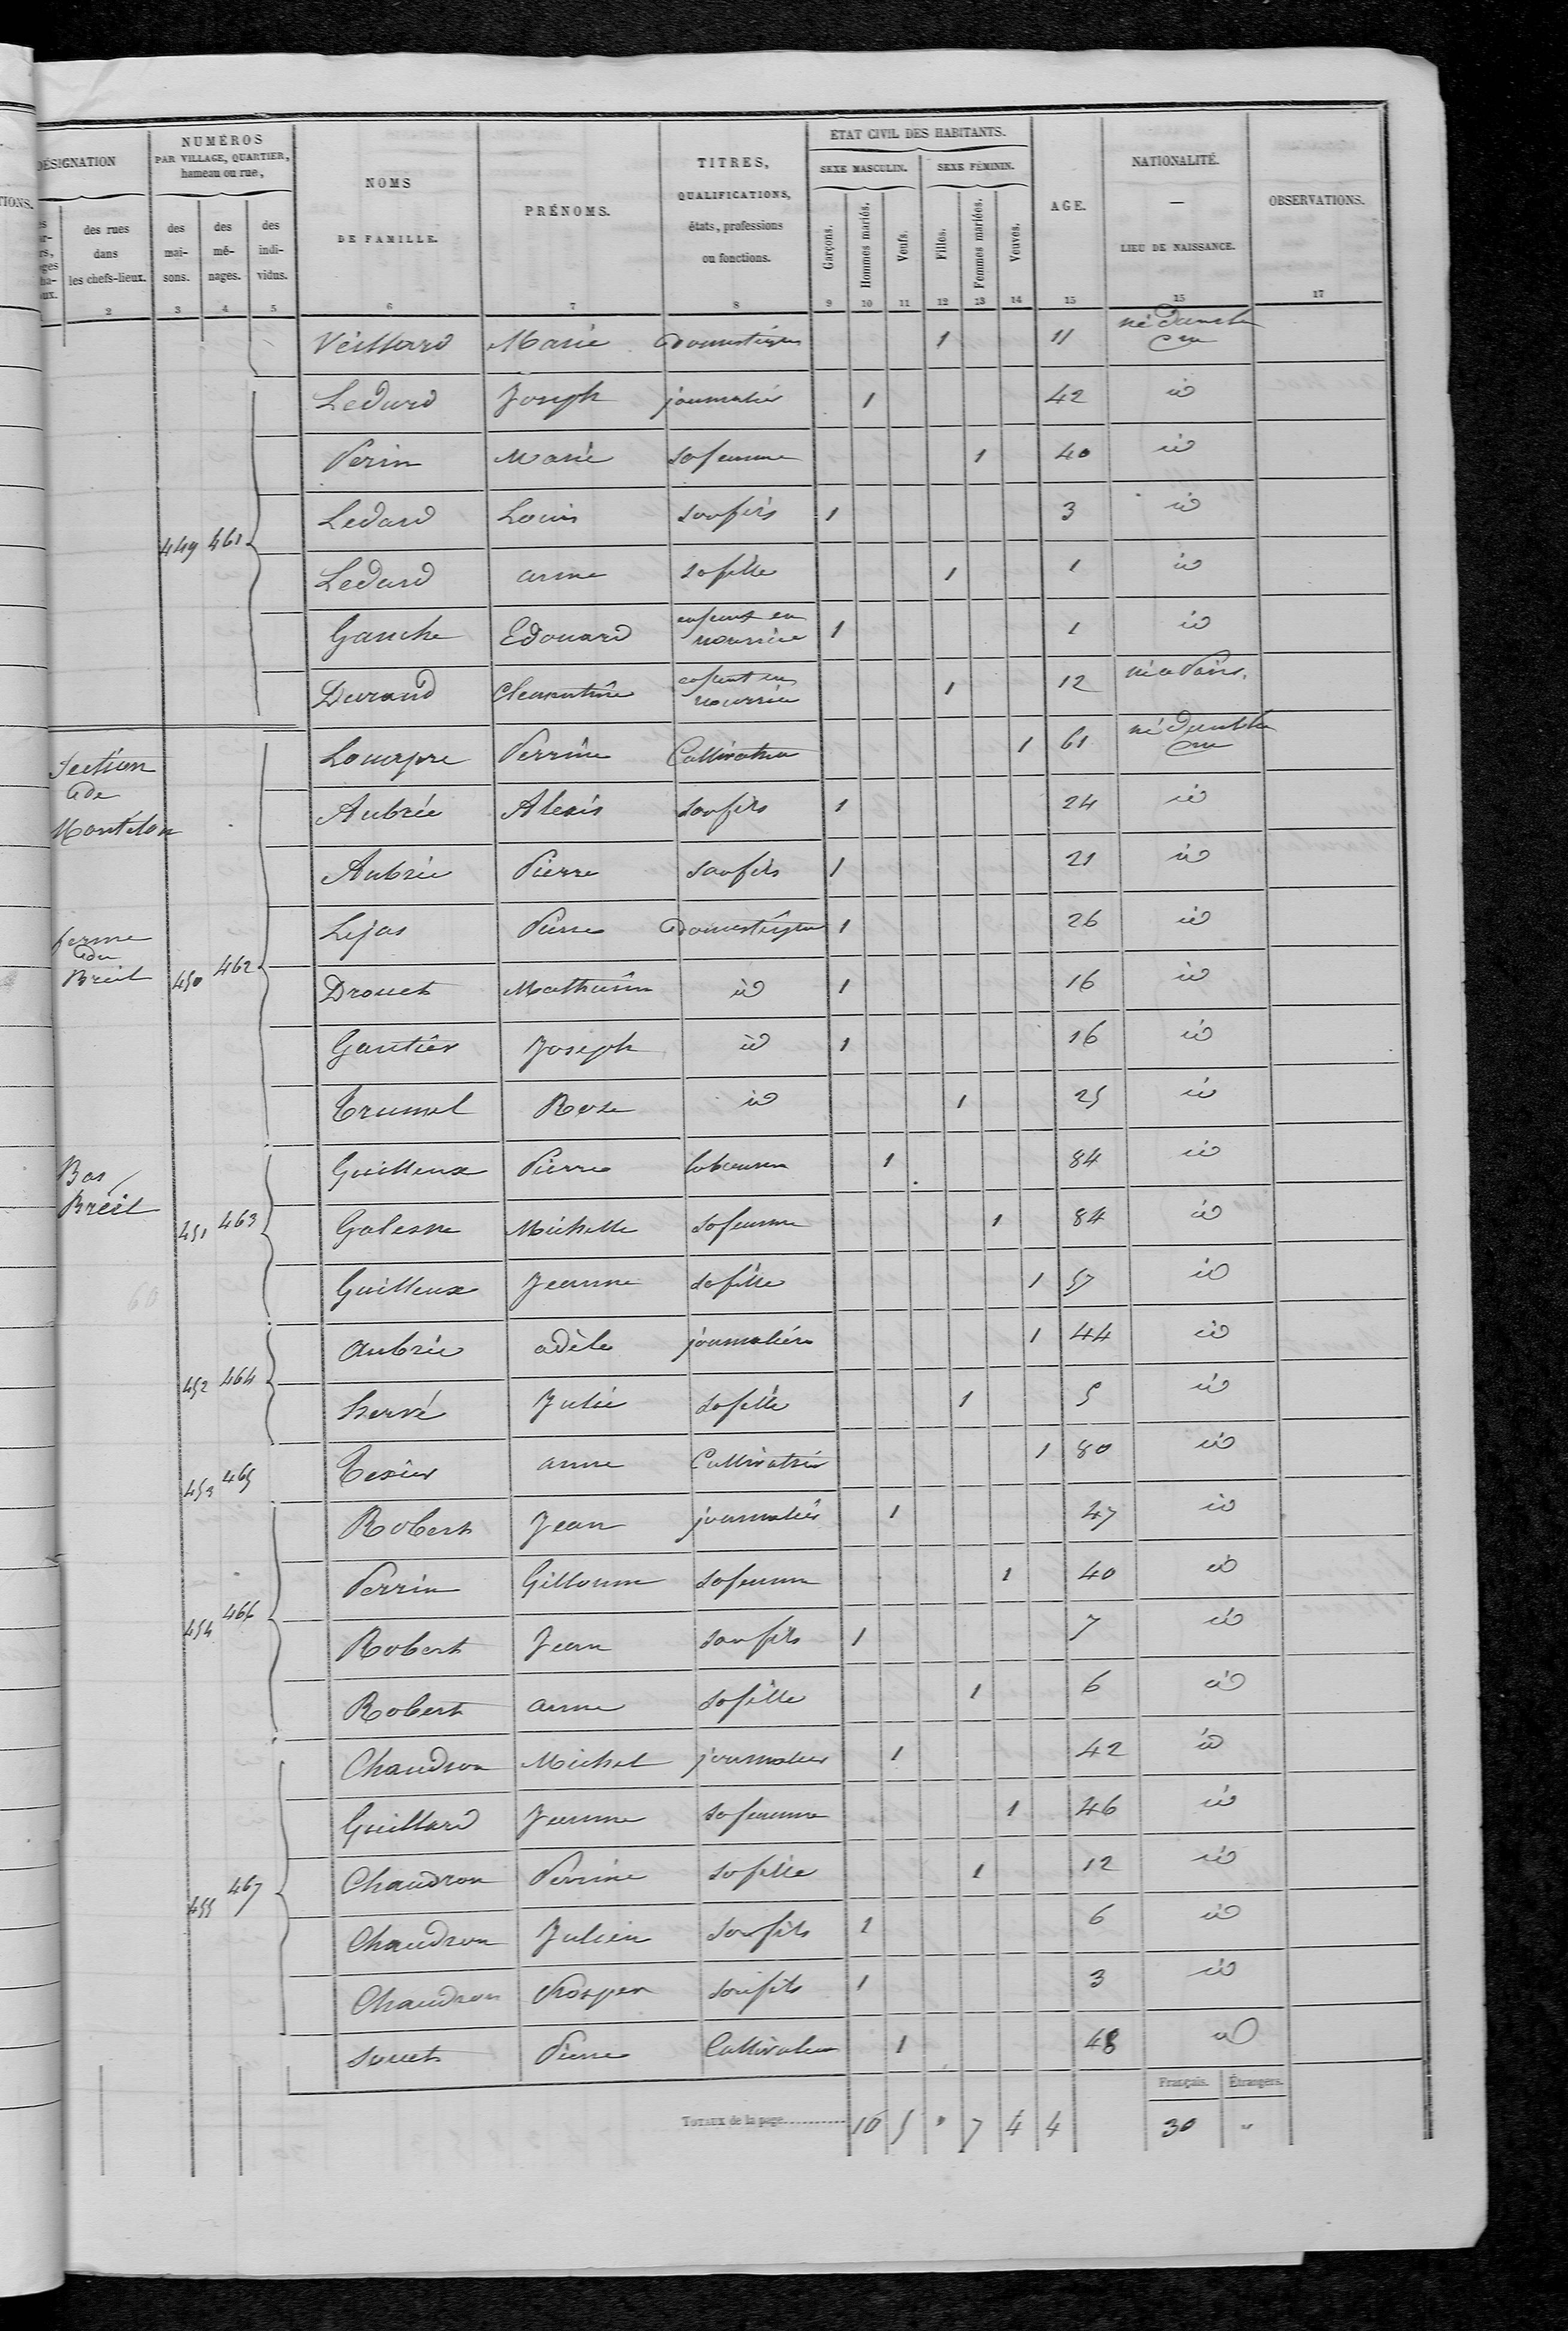 DÉSIGNATION
NUMÉROS
PAR VILLAGE, QUARTIER,
hameau ou rue,
NOMS
DE FAMILLE.
PRÉNOMS.
TITRES,
QUALIFICATIONS,
états, professions
ou fonctions.
ÉTAT CIVIL DES HABITANTS.
SEXE MASCULIN.
SEXE FÉMININ.
AGE.
NATIONALITÉ.
—
LIEU DE NAISSANCE.
OBSERVATIONS.
des rues
dans
les chefs-lieux.
des
mai-
sons.
des
mé-
nages.
des
indi-
vidus.
Garçons.
Hommes mariés.
Veufs.
Filles.
Femmes mariées.
Veuves.
2 3 4 5 6 7 8 9 10 11 12 13 14 15 15 17
Veillard Marie domestique 1 11 né dans la
Ledard Joseph journalier 1 42 id
Perin Marie sa femme 1 40 id
Ledard Louis son fils 1 3 id
449 461
Ledard anne sa fille 1 1 id
Gauche Edouard enfant en nourrice 1 1 id
Durand Clementine enfant en nourrice 1 12 né a Paris.
Section de Montelon
Perrine Cultivatrice 1 61 né dans la
Aubrée Alexis son fils 1 24 id
Aubrée Pierre son fils 1 21 id
ferme du Breil 450 462
Lejas Pierre domestique 1 26 id
Drouet Mathurin id 1 16 id
Gautier Joseph id 1 16 id
Trumel Rose id 1 25 id
Bas Breil 451 463
Guilleux Pierre laboureur 1 84 id
Galesne Michelle sa femme 1 84 id
Guilleux Jeanne sa fille 1 57 id
452 464
Aubrée adèle journalière 1 44 id
hervé Julie sa fille 1 5 id
453 465
Texier anne Cultivatrice 1 80 id
454 466
Robert Jean journalier 1 47 id
Perrin Gillonne sa femme 1 40 id
Robert Jean son fils 1 7 id
Robert anne sa fille 1 6 id
455 467
Chaudron Michel journalier 1 42 id
Guillard Jeanne sa femme 1 46 id
Chaudron Perrine sa fille 1 12 id
Chaudron Julien son fils 1 6 id
Chaudron Prosper son fils 1 3 id
Pierre Cultivateur 1 48 id
Français. Étrangers.
TOTAUX de la page 10 5 " 7 4 4 30 "